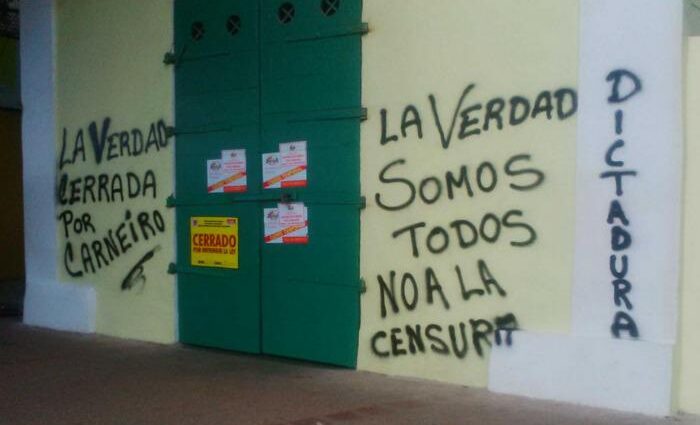 LA VERDAD
CERRADA
POR
CARNEIRO
CERRADO
POR INFRINGIR LA LEY
LA VERDAD
SOMOS
TODOS
NO A LA
CENSURA
DICTADURA